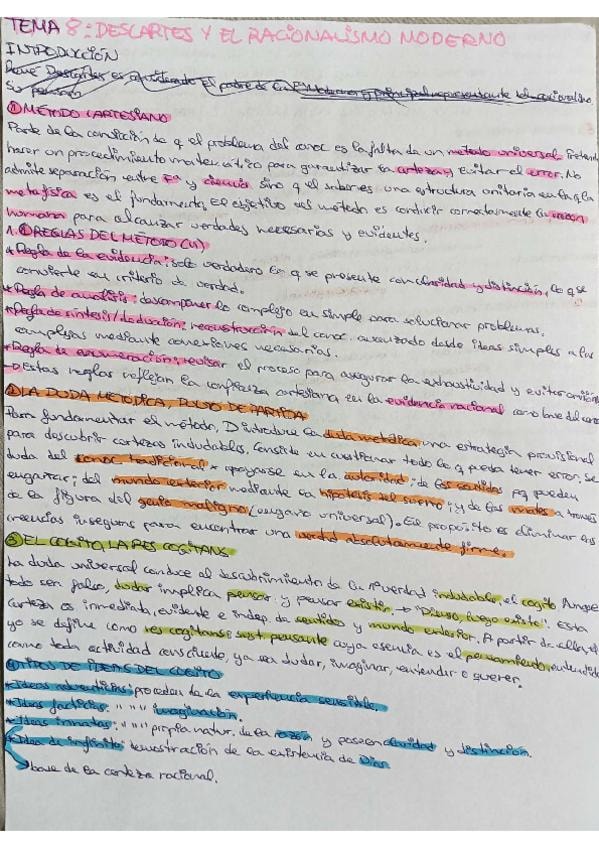 TEMA 8: DESCARTES Y EL RACIONALISMO MODERNO
INTRODUCCIÓN
René Descartes es considerado el padre de la Fª Moderna y principal representante del racionalismo
Su
① MÉTODO CARTESIANO
Parte de la convicción de q el problema del conoc es la falta de un método universal. Pretende
hacer un procedimiento matemático para garantizar la certeza y evitar el error. No
admite separación entre Fª y ciencia sino q el saber es una estructura unitaria en la q la
metafísica es el fundamento. El objetivo del método es conducir correctamente la razón
humana para alcanzar verdades necesarias y evidentes.
1.1 REGLAS DEL MÉTODO (4)
*Regla de la evidencia: solo verdadero lo q se presente con claridad y distinción, lo q se
convierte en criterio de verdad.
*Regla de análisis: descomponer lo complejo en simple para solucionar problemas.
*Regla de síntesis/deducción: reconstrucción del conoc. avanzado desde ideas simples a las
complejas mediante conexiones necesarias.
*Regla de enumeración: revisar el proceso para asegurar la exhaustividad y evitar omisión
→Estas reglas reflejan la confianza cartesiana en la evidencia racional como base del conoc
② LA DUDA METÓDICA, PUNTO DE PARTIDA
Para fundamentar el método, D introduce la duda metódica una estrategia provisional
para descubrir certezas indudables. Consiste en cuestionar todo lo q pueda tener error, se
duda del conoc tradicional x apoyarse en la autoridad; de los sentidos pq pueden
engañar; del mundo exterior mediante la hipótesis del sueño; y de las mates a través
de la figura del genio maligno (engaño universal). El propósito es eliminar las
creencias inseguras para encontrar una verdad absolutamente firme.
③ EL COGITO, LA RES COGITANS
La duda universal conduce al descubrimiento de la 1ª verdad indudable, el cogito. Aunque
todo sea falso, dudar implica pensar y pensar existir. → "Pienso, luego existo". Esta
certeza es inmediata, evidente e indep. de sentidos y mundo exterior. A partir de ella, el
yo se define como res cogitans: sust pensante cuya esencia es el pensamiento, entendido
como toda actividad consciente, ya sea dudar, imaginar, entender o querer.
④ TIPOS DE IDEAS DEL COGITO
*Ideas adventicias: proceden de la experiencia sensible.
*Ideas facticias: " " " imaginación.
*Ideas innatas: " " " propia natur. de la razón y poseen claridad y distinción.
*Idea de infinito: demostración de la existencia de Dios
base de la certeza racional.